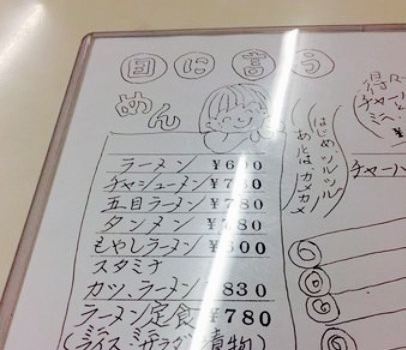 目に言う
めん
ラーメン
チャシューメン
五目ラーメン ¥780
タンメン
もやしラーメン
スタミナ
カツ、ラーメン 830
ラーメン定食 ¥780
ミニ ミニ
(ライス・サラダ 漬物)
はじめ、ツルツル
あとは、カメカメ
チャーハ